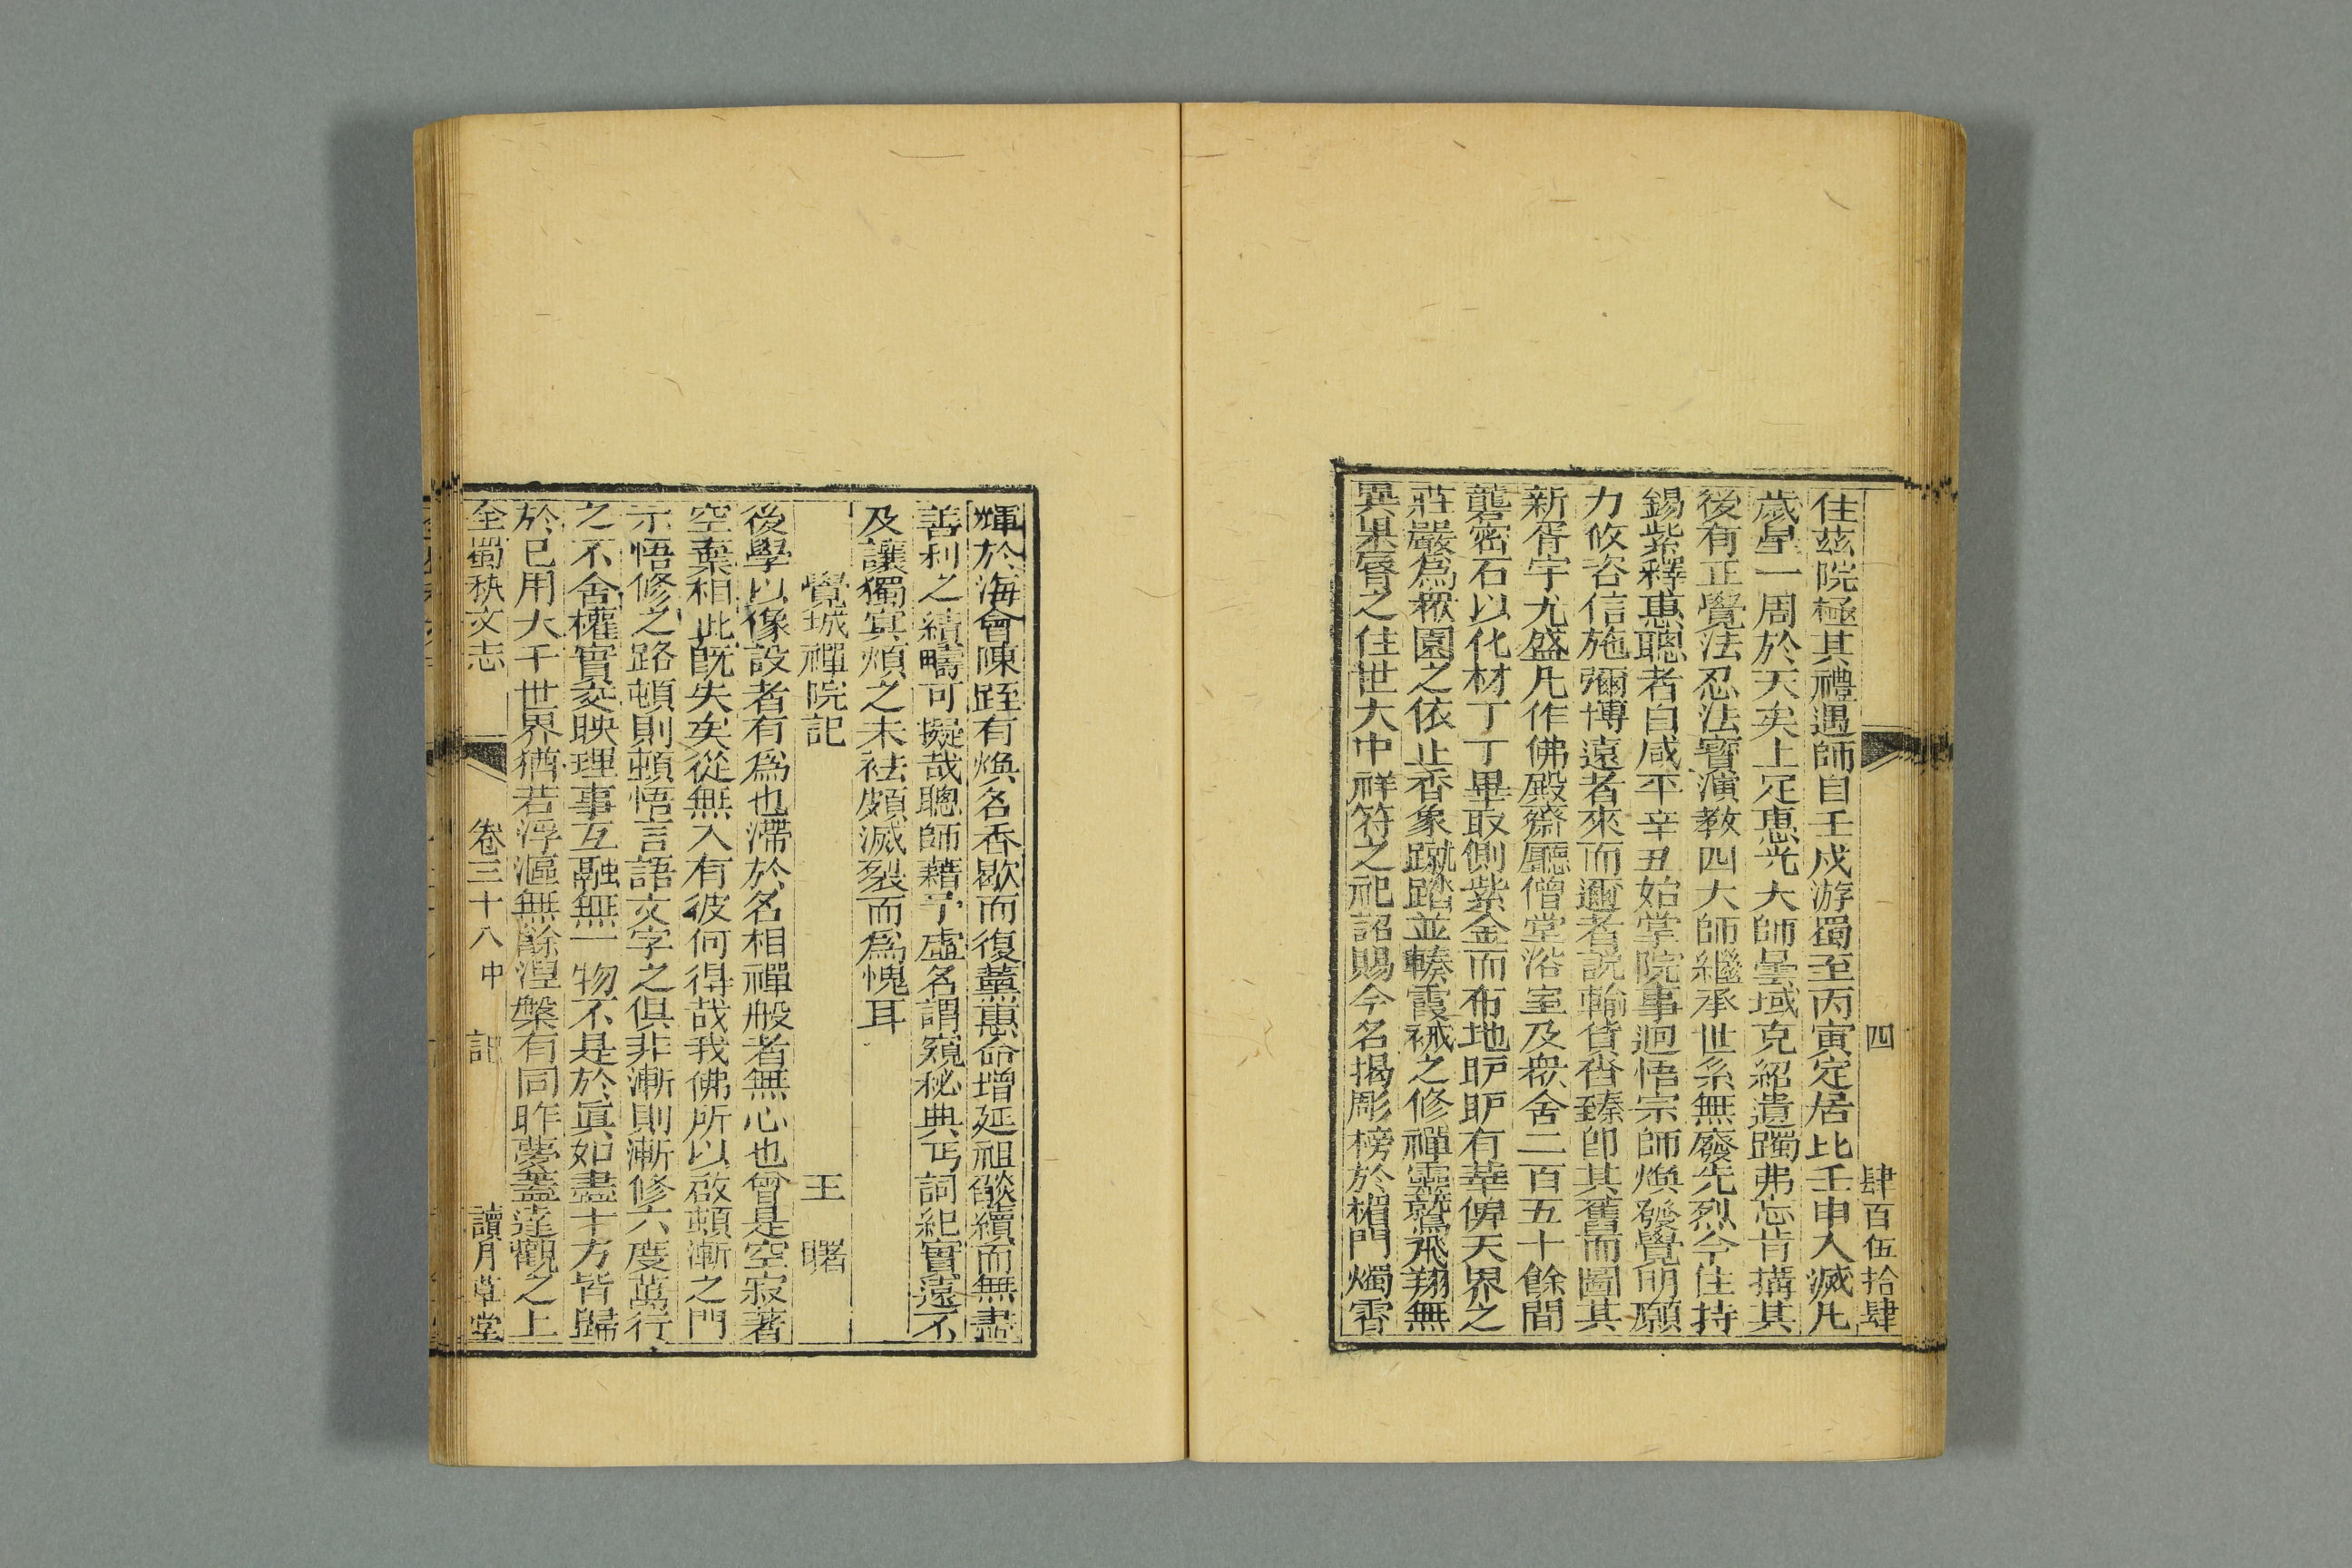 四　肆百伍拾肆
住茲院極其禮遇師自壬戌游蜀至丙寅定居比壬申入滅凡
歲星一周於天矣上足惠光大師曇域克紹遺躅弗忘肯搆其
後有正覺法忍法寶演教四大師繼承世系無廢先烈今住持
錫紫釋惠聰者自咸平辛丑始掌院事迥悟宗師煥發覺明願
力攸咨信施彌博遠者來而邇者說輸貨沓臻卽其舊而圖其
新胥宇尤盛凡作佛殿齋廳僧堂浴室及眾舍二百五十餘間
礱密石以化材丁丁畢取側紫金而布地昈昈有華俾天界之
莊嚴爲眾園之依止香象蹴踏並轃霞祴之修禪靈鷲飛翔無
異果脣之住世大中祥符之祀詔賜今名揭彫榜於楣門燭霄
輝於海會陳跸有煥名香歇而復薰蕙命增延祖燄續而無盡
善利之績疇可擬哉聰師藉予虛名謂窺秘典丐詞紀實遠不
及讓獨寘煩之未袪頗滅裂而爲愧耳
覺城禪院記　王曙
後學以像設者有爲也滯於名相禪般者無心也曾是空寂著
空棄相此旣失矣從無入有彼何得哉我佛所以啟頓漸之門
示悟修之路頓則頓悟言語文字之俱非漸則漸修六度萬行
之不舍權實交映理事互融無一物不是於眞如盡十方皆歸
於已用大千世界猶若浮漚無餘湼槃有同昨夢蓋達觀之上
全蜀秇文志　卷三十八中　記　讀月草堂